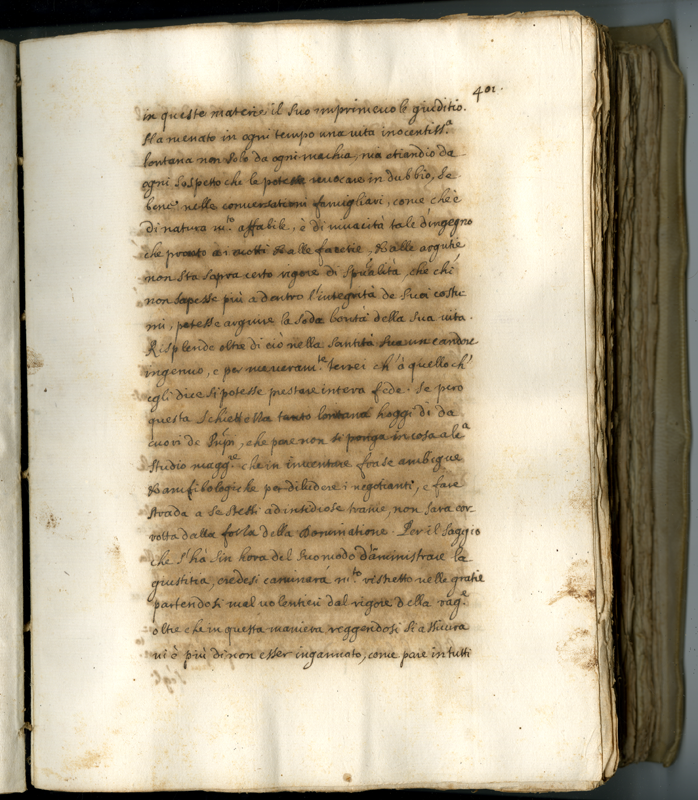 401.
in queste materie il suo imprimeuole giuditio.
Ha menato in ogni tempo una uita inocentiss.ª
lontana non solo da ogni machia, mà etiandio da
ogni sospetto che le potesse reuocare in dubbio, Se
bene nelle conuersationi famigliari, come che è
di natura m.to affabile, è di uiuacità tale d'ingegno
che ai motti & alle facetie, & alle argutie
non sta sopra certo rigore di Spũalità, che chi
non sapesse più adentro l'integrità de suoi costu
mi, potesse arguire la soda bontà della sua uita.
Risplende oltre di ciò nella Santità Sua un candore
ingenuo, e per me ueram.te terrei ch'à quello ch'
egli dice si potesse prestare intera fede. Se pero
questa schiettezza tanto lontana hoggi dì da
cuori de Prĩpi, che pare non si ponga in cosa alc.ª
studio magg.re che in inuentare frase ambigue
& amfibologiche per deludere i negotianti, e fare
strada a se stessi ad insidiose trame, non sarà cor
rotta dalla forza della Dominatione. Per il saggio
che s'hà sin hora del suo modo d'amministrare la
giustitia, credesi caminarà m.to ristretto nelle gratie
partendosi mal uolentieri dal rigore della rag.e
oltre che in questa maniera reggendosi si assicura
ui è più di non esser ingannato, come pare in tutti